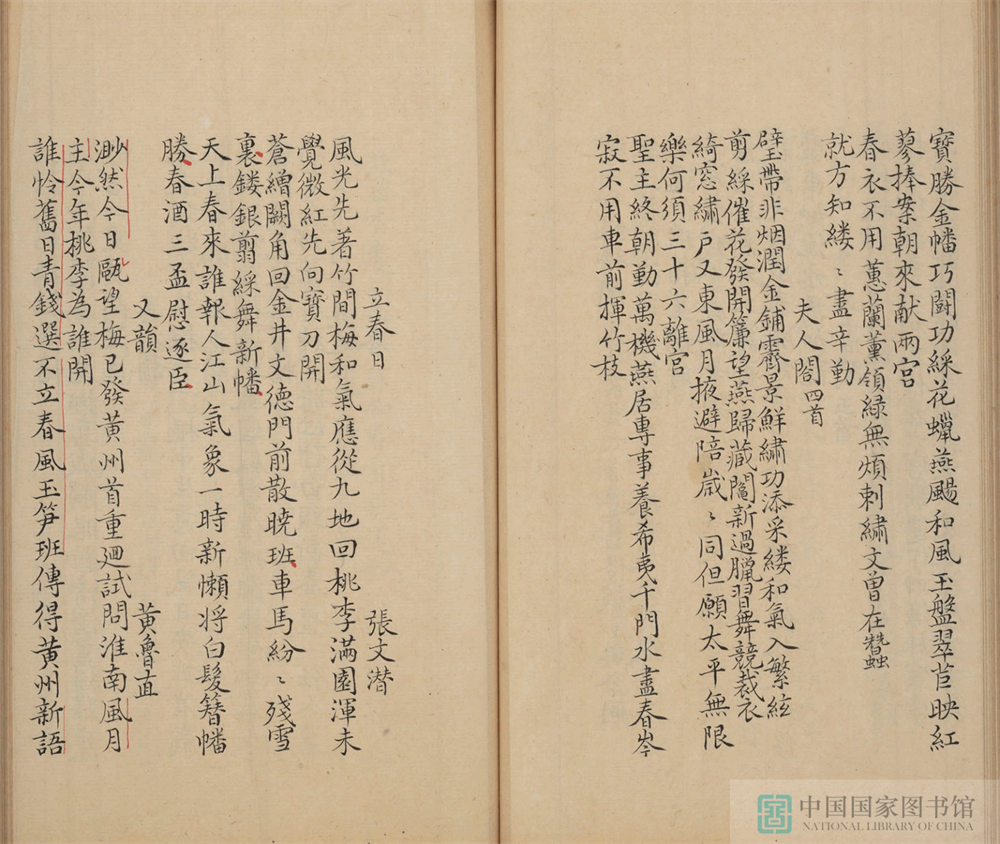 寶勝金幡巧鬬功綵花蠟燕颺和風玉盤翠苣映紅
蓼捧案朝來献兩宮
春衣不用蕙蘭薰領緑無煩刺繡文曾在蠶
就方知縷〻盡辛勤
夫人閤四首
璧帶非烟潤金鋪霽景鮮繡功添采縷和氣入繁絃
剪綵催花發開簾望燕歸藏鬮新過臘習舞競裁衣
綺窓繡戸又東風月掖避陪嵗〻同但願太平無限
樂何須三十六離宮
聖主終朝勤萬機燕居専事養希夷千門水盡春岑
寂不用車前揮竹枝
立春日 張文潜
風光先著竹間梅和氣應從九地回桃李滿園渾未
覺微紅先向寶刀開
蒼繒闕角回金井文德門前散曉班車馬紛〻殘雪
裏鏤銀翦綵舞新幡
天上春來誰報人江山氣象一時新懶将白髮簪幡
勝春酒三盃慰逐臣
又韻 黃魯直
渺然今日甌望梅已發黄州首重廻試問淮南風月
主今年桃李為誰開
誰怜舊日青錢選不立春風玉笋班傳得黄州新語
中国国家图书馆
NATIONAL LIBRARY OF CHINA